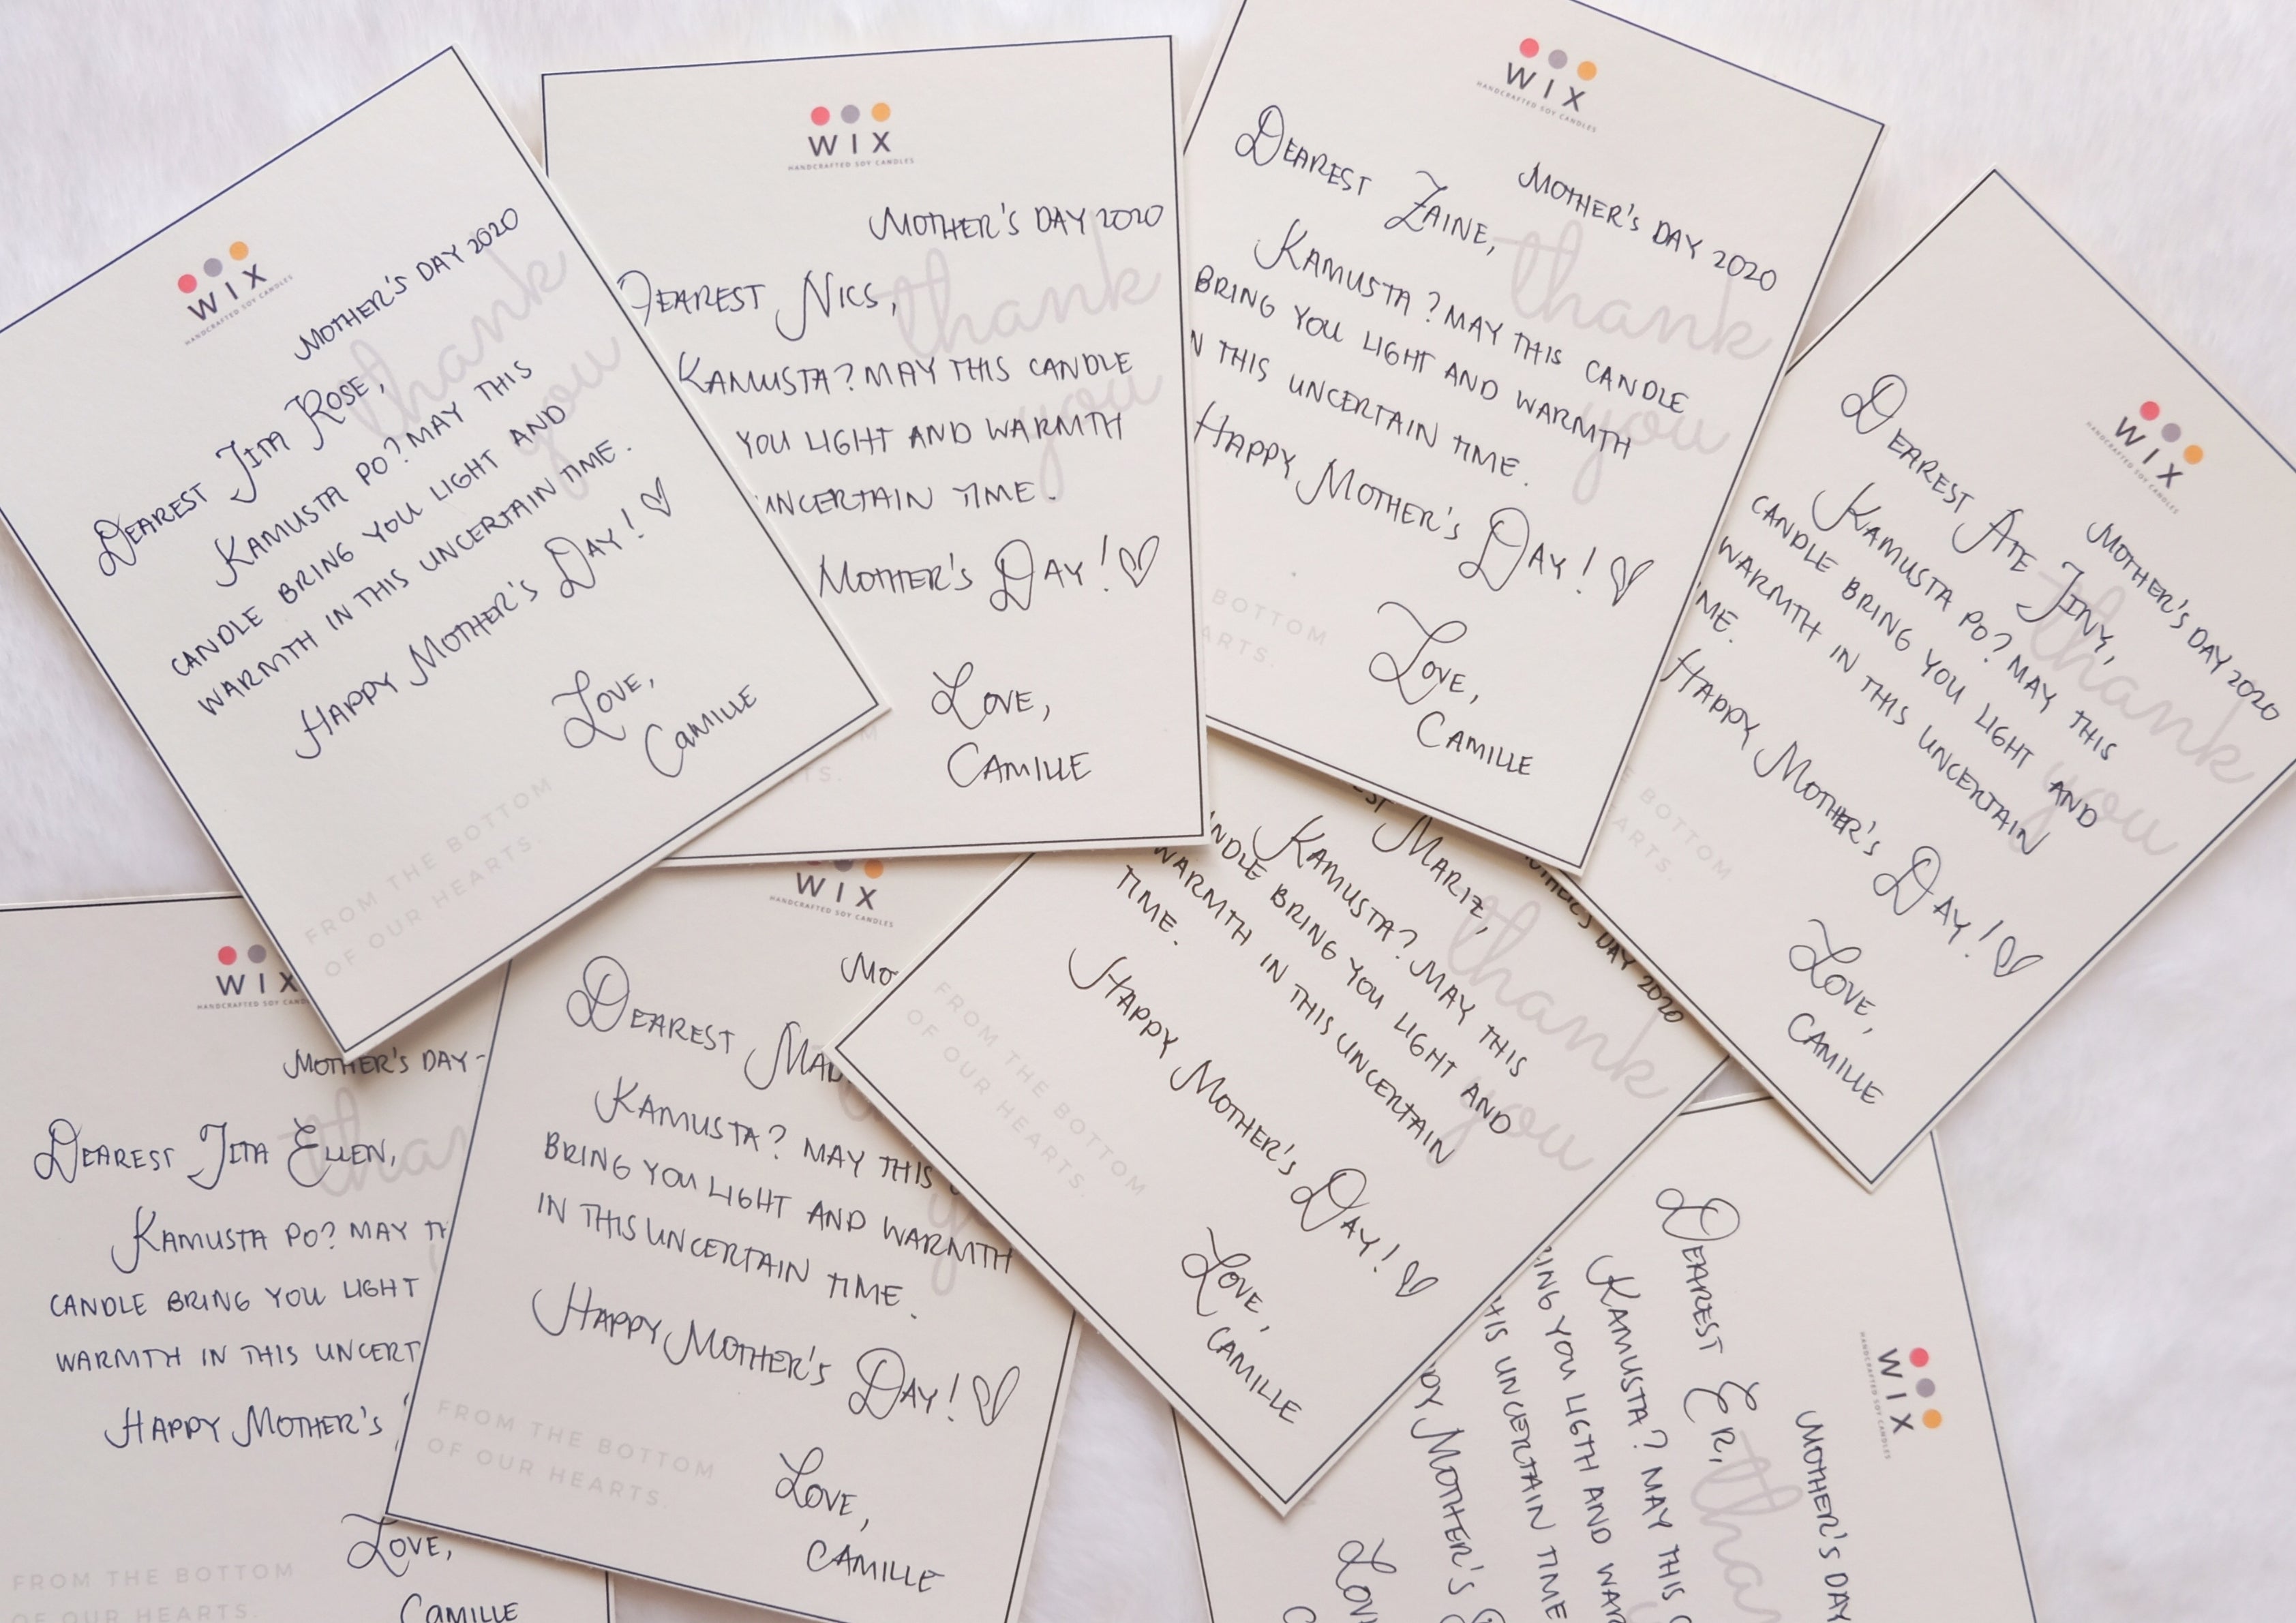 WIX
HANDCRAFTED SOY CANDLES
MOTHER'S DAY 2020
DEAREST TITA ROSE,
KAMUSTA PO? MAY THIS
CANDLE BRING YOU LIGHT AND
WARMTH IN THIS UNCERTAIN TIME.
HAPPY MOTHER'S DAY!
LOVE,
CAMILLE
thank
you
FROM THE BOTTOM
OF OUR HEARTS.
WIX
HANDCRAFTED SOY CANDLES
MOTHER'S DAY 2020
DEAREST NICS,
KAMUSTA? MAY THIS CANDLE
YOU LIGHT AND WARMTH
UNCERTAIN TIME.
MOTHER'S DAY!
LOVE,
CAMILLE
thank
you
WIX
HANDCRAFTED SOY CANDLES
MOTHER'S DAY 2020
DEAREST ZAINE,
KAMUSTA? MAY THIS CANDLE
BRING YOU LIGHT AND WARMTH
THIS UNCERTAIN TIME.
HAPPY MOTHER'S DAY!
LOVE,
CAMILLE
thank
you
BOTTOM
WIX
HANDCRAFTED SOY CANDLES
MOTHER'S DAY 2020
DEAREST ATE TINY,
KAMUSTA PO? MAY THIS
CANDLE BRING YOU LIGHT AND
WARMTH IN THIS UNCERTAIN
ME.
HAPPY MOTHER'S DAY!
LOVE,
CAMILLE
thank
you
BOTTOM
WIX
HANDCRAFTED SOY
MOTHER'S DAY
DEAREST TITA ELLEN,
KAMUSTA PO? MAY
CANDLE BRING YOU LIGHT
WARMTH IN THIS UNCERT
HAPPY MOTHER'S
LOVE,
CAMILLE
FROM THE BOTTOM
OF OUR HEARTS.
WIX
HANDCRAFTED SOY CANDLES
MO
DEAREST
KAMUSTA? MAY THIS
BRING YOU LIGHT AND WARMTH
IN THIS UNCERTAIN TIME.
HAPPY MOTHER'S DAY!
LOVE,
CAMILLE
FROM THE BOTTOM
OF OUR HEARTS.
MOTHER'S DAY 2020
MARIZ,
KAMUSTA? MAY THIS
NDLE BRING YOU LIGHT AND
WARMTH IN THIS UNCERTAIN
TIME.
HAPPY MOTHER'S DAY!
LOVE,
CAMILLE
thank
you
FROM THE BOTTOM
OF OUR HEARTS.
WIX
HANDCRAFTED SOY CANDLES
MOTHER'S DAY
DEAREST ER,
KAMUSTA? MAY THIS
ING YOU LIGTH AND WAR
THIS UNCERTAIN TIME
PY MOTHER'S